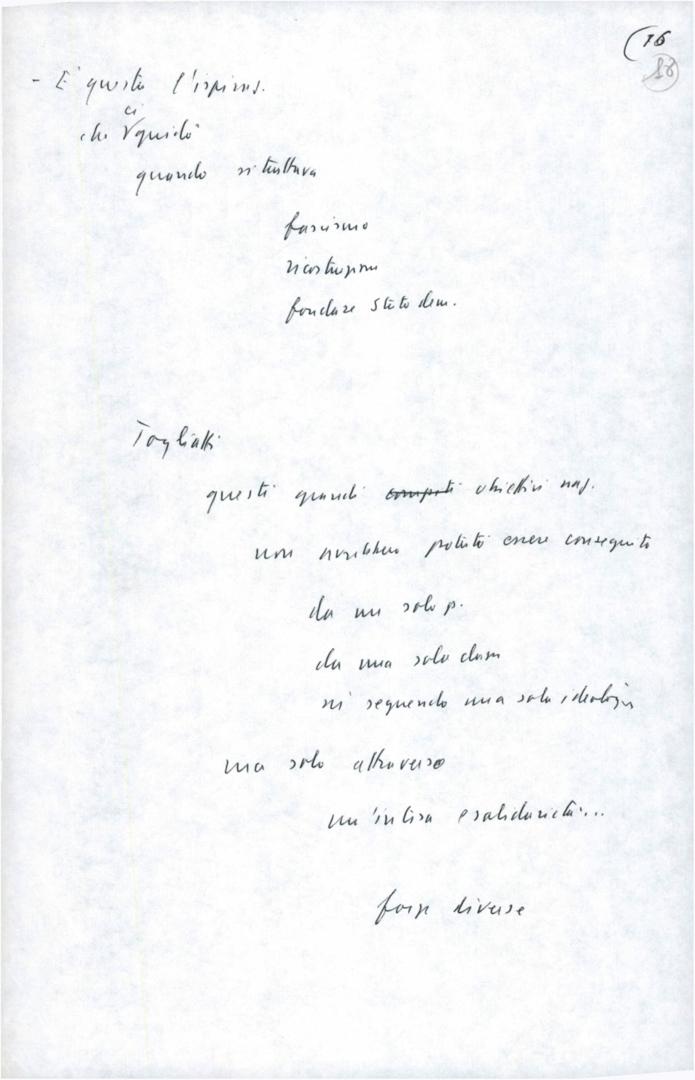 (16
86
- E' questa l'ispiraz.
ci
che guidò
quando si trattava
fascismo
ricostruzione
fondare Stato dem.
Togliatti
questi grandi compiti obiettivi naz.
non avrebbero potuto essere conseguiti
da un solo p.
da una sola classe
né seguendo una sola ideologia
ma solo attraverso
un'intesa e solidarietà...
forze diverse